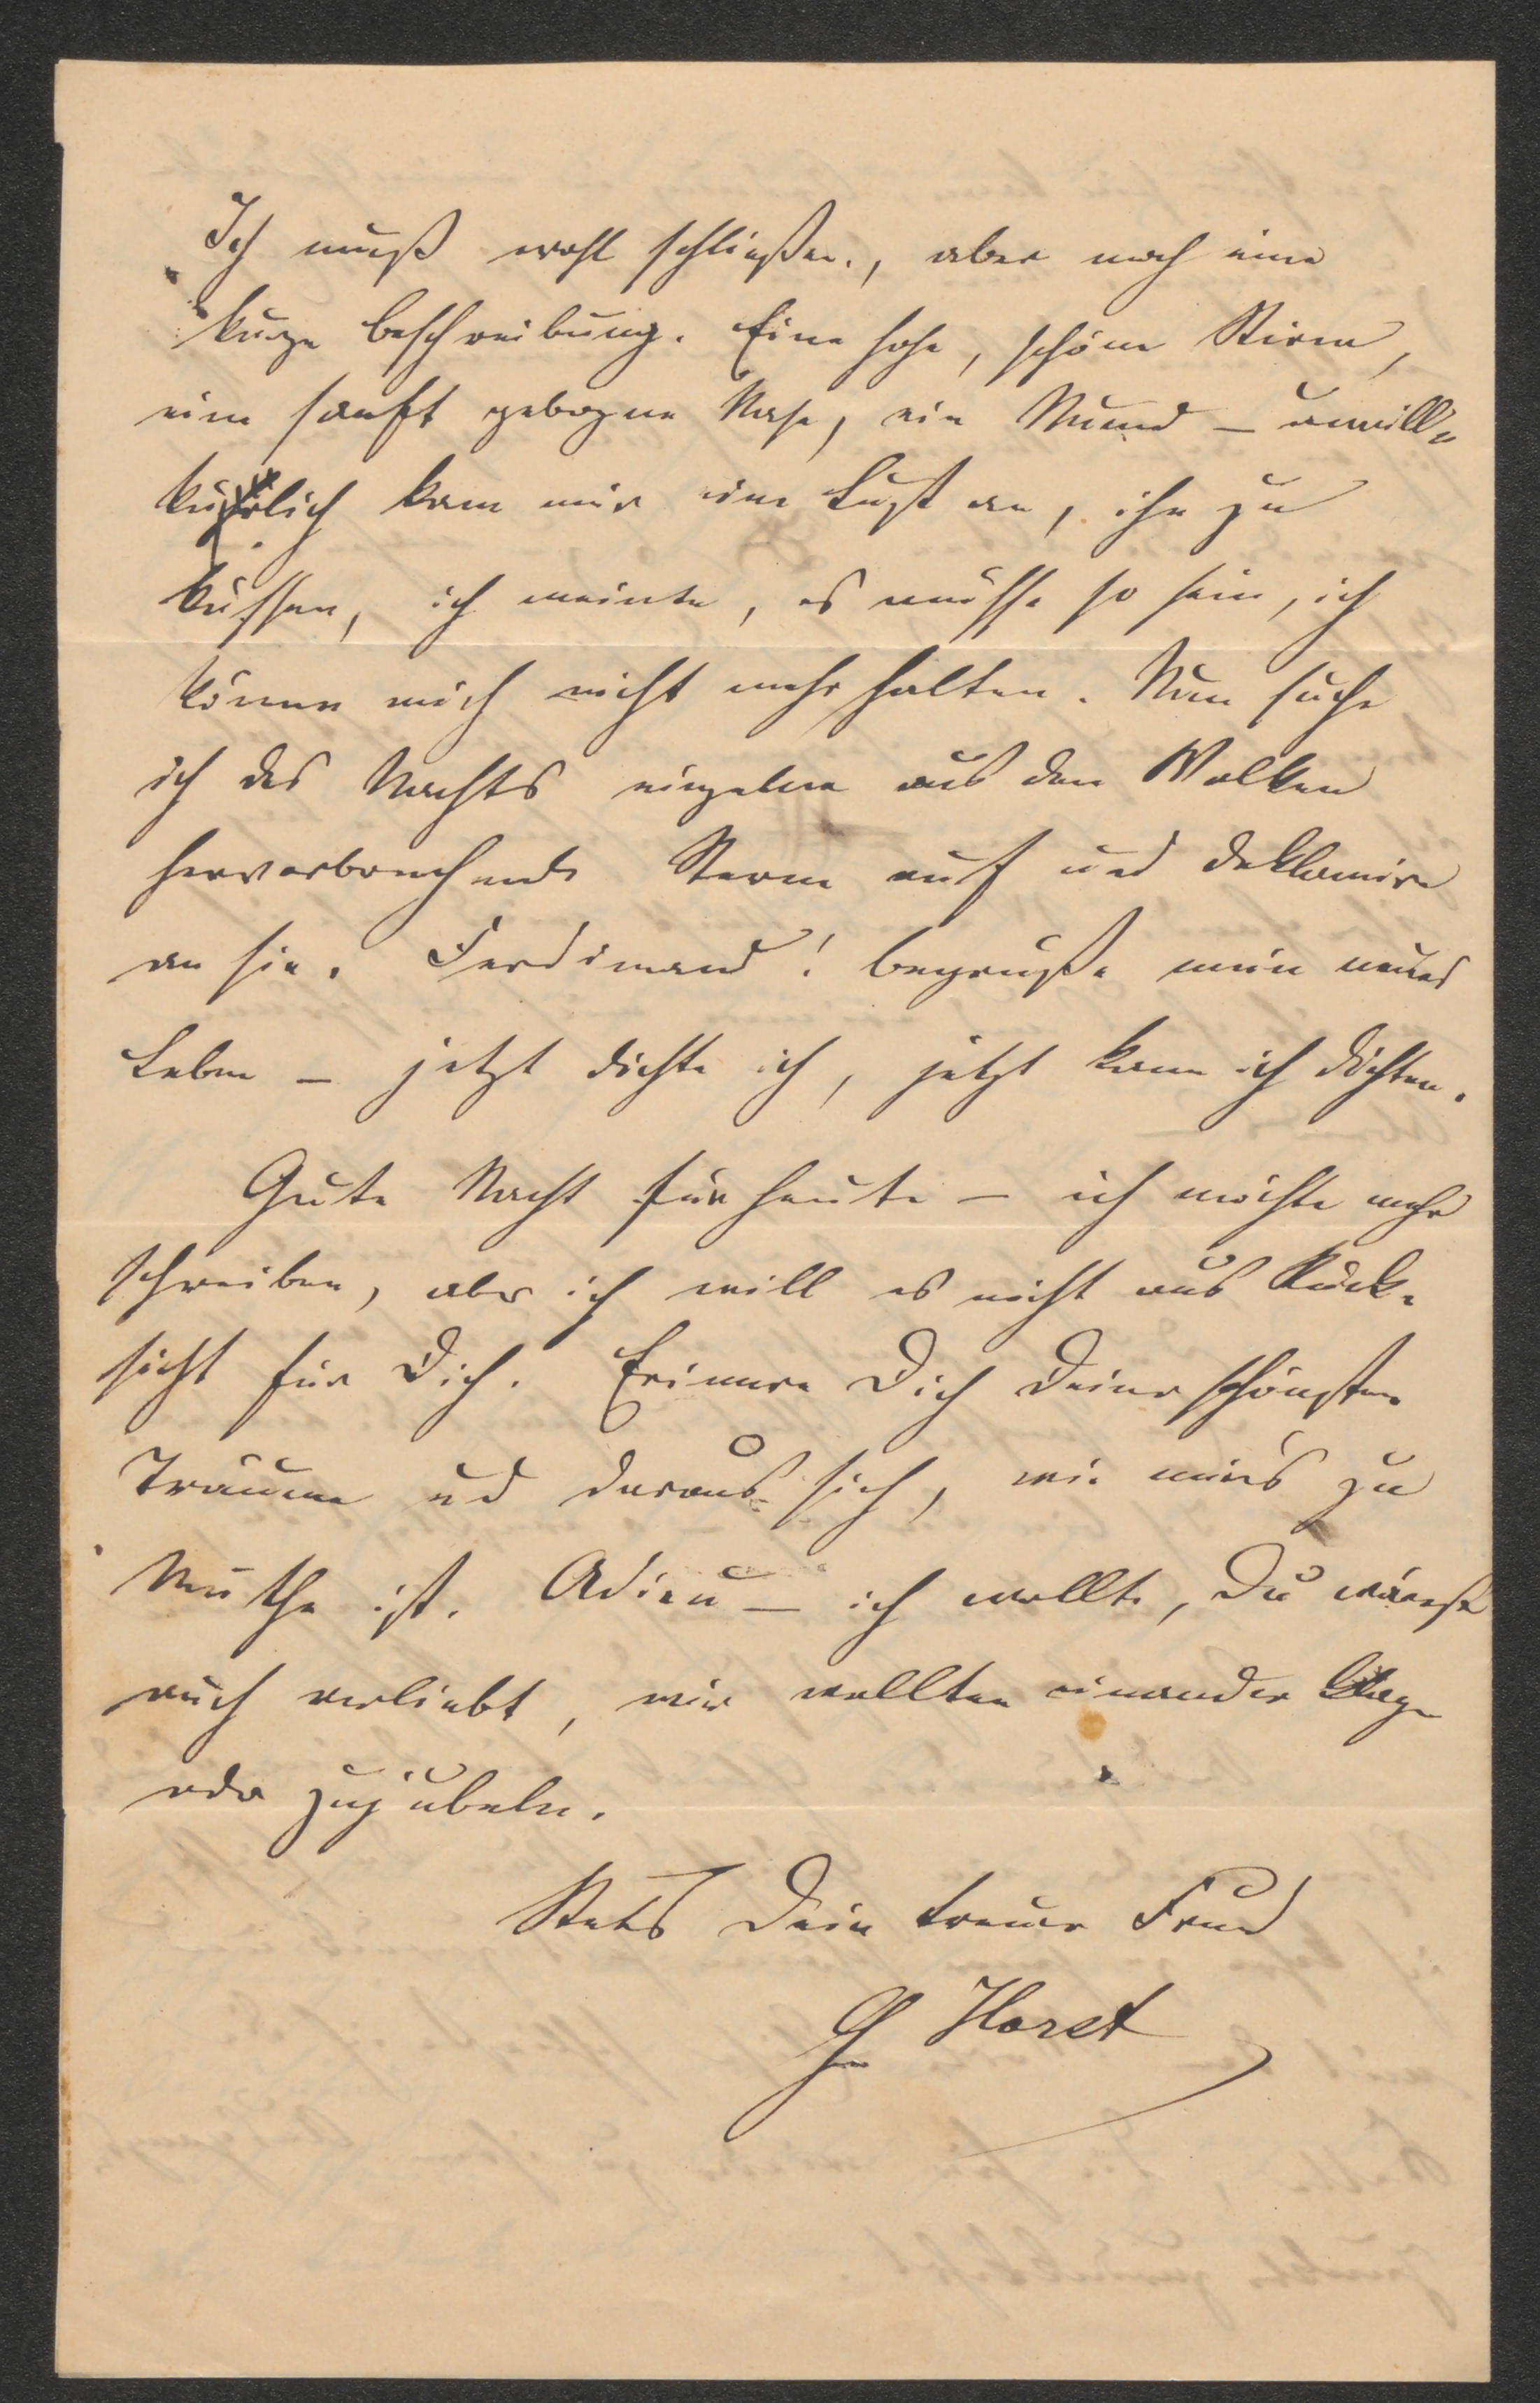 Ich muß wohl schließen, aber noch eine
kurze Beschreibung. Eine hohe, schöne Stirn,
eine sanft gebogne Nase, ein Mund – unwill-
kürlich kam mir eine Lust an, ihn zu
küssen, ich meinte, es müsse so sein, ich
könne mich nicht mehr halten. Nun suche
ich des Nachts einzelne aus den Wolken
hervorbrechende Sterne auf und deklamire
an sie. Ferdinand! begrüße mein neues
Leben – jetzt dichte ich, jetzt kann ich dichten.
Gute Nacht für heute – ich möchte mehr
schreiben, aber ich will es nicht aus Rück-
sicht für Dich. Erinnre Dich Deiner schönsten
Träume und daraus sieh, wie mir's zu
Muthe ist. Adieu – ich wollte, Du wärest
auch verliebt, wir wollten einander
oder zujubeln.
Stets Dein treuer Freund
Horst